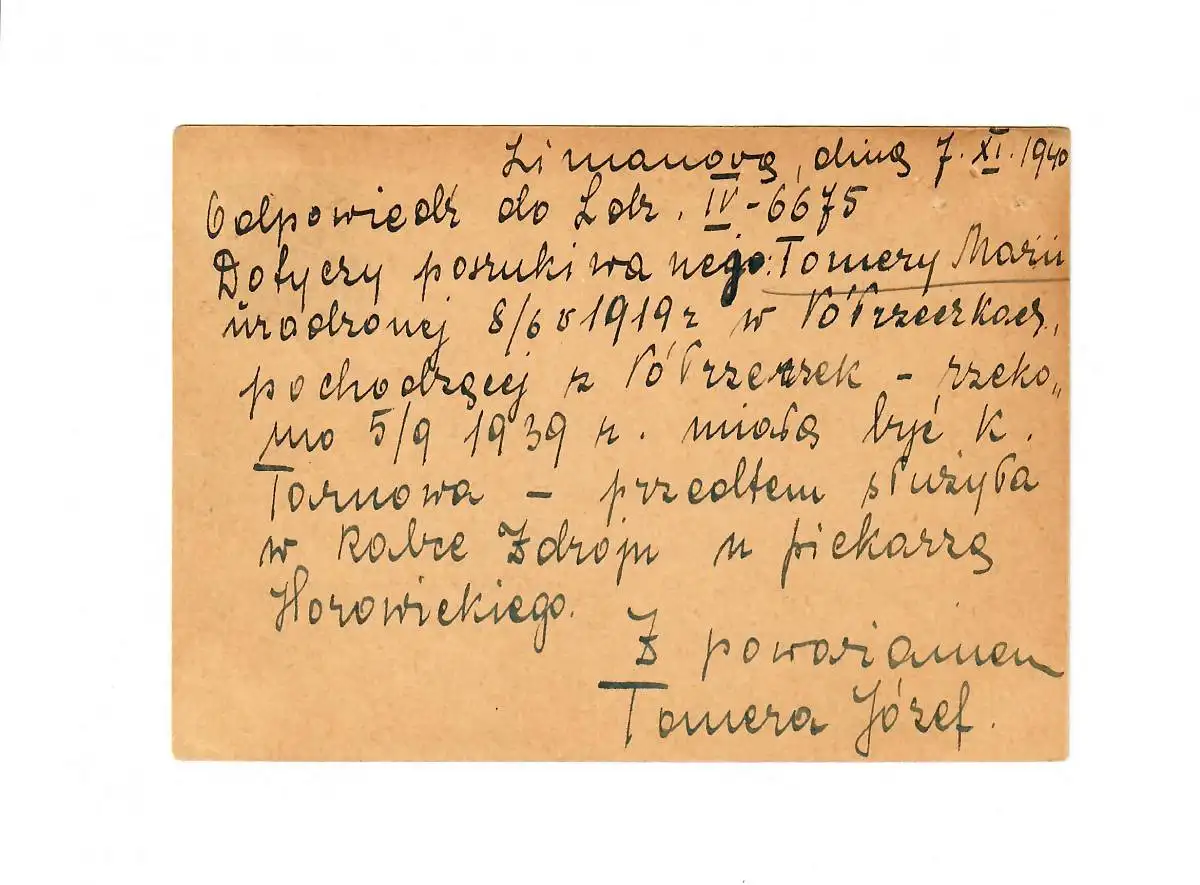 Limanova, dnia 7. XI. 1940
Odpowiedź do L.dz. IV - 6675
Dotyczy poszukiwanego: Tomery Marii
urodzonej 8/6 1919 r w Półrzeczkach,
pochodzącej z Półrzeczek - rzeko„
mo 5/9 1939 r. miała być k.
Tarnowa - przedtem służyła
w Rabce Zdroju u piekarza
Horowickiego.
Z poważaniem
Tomera Józef.